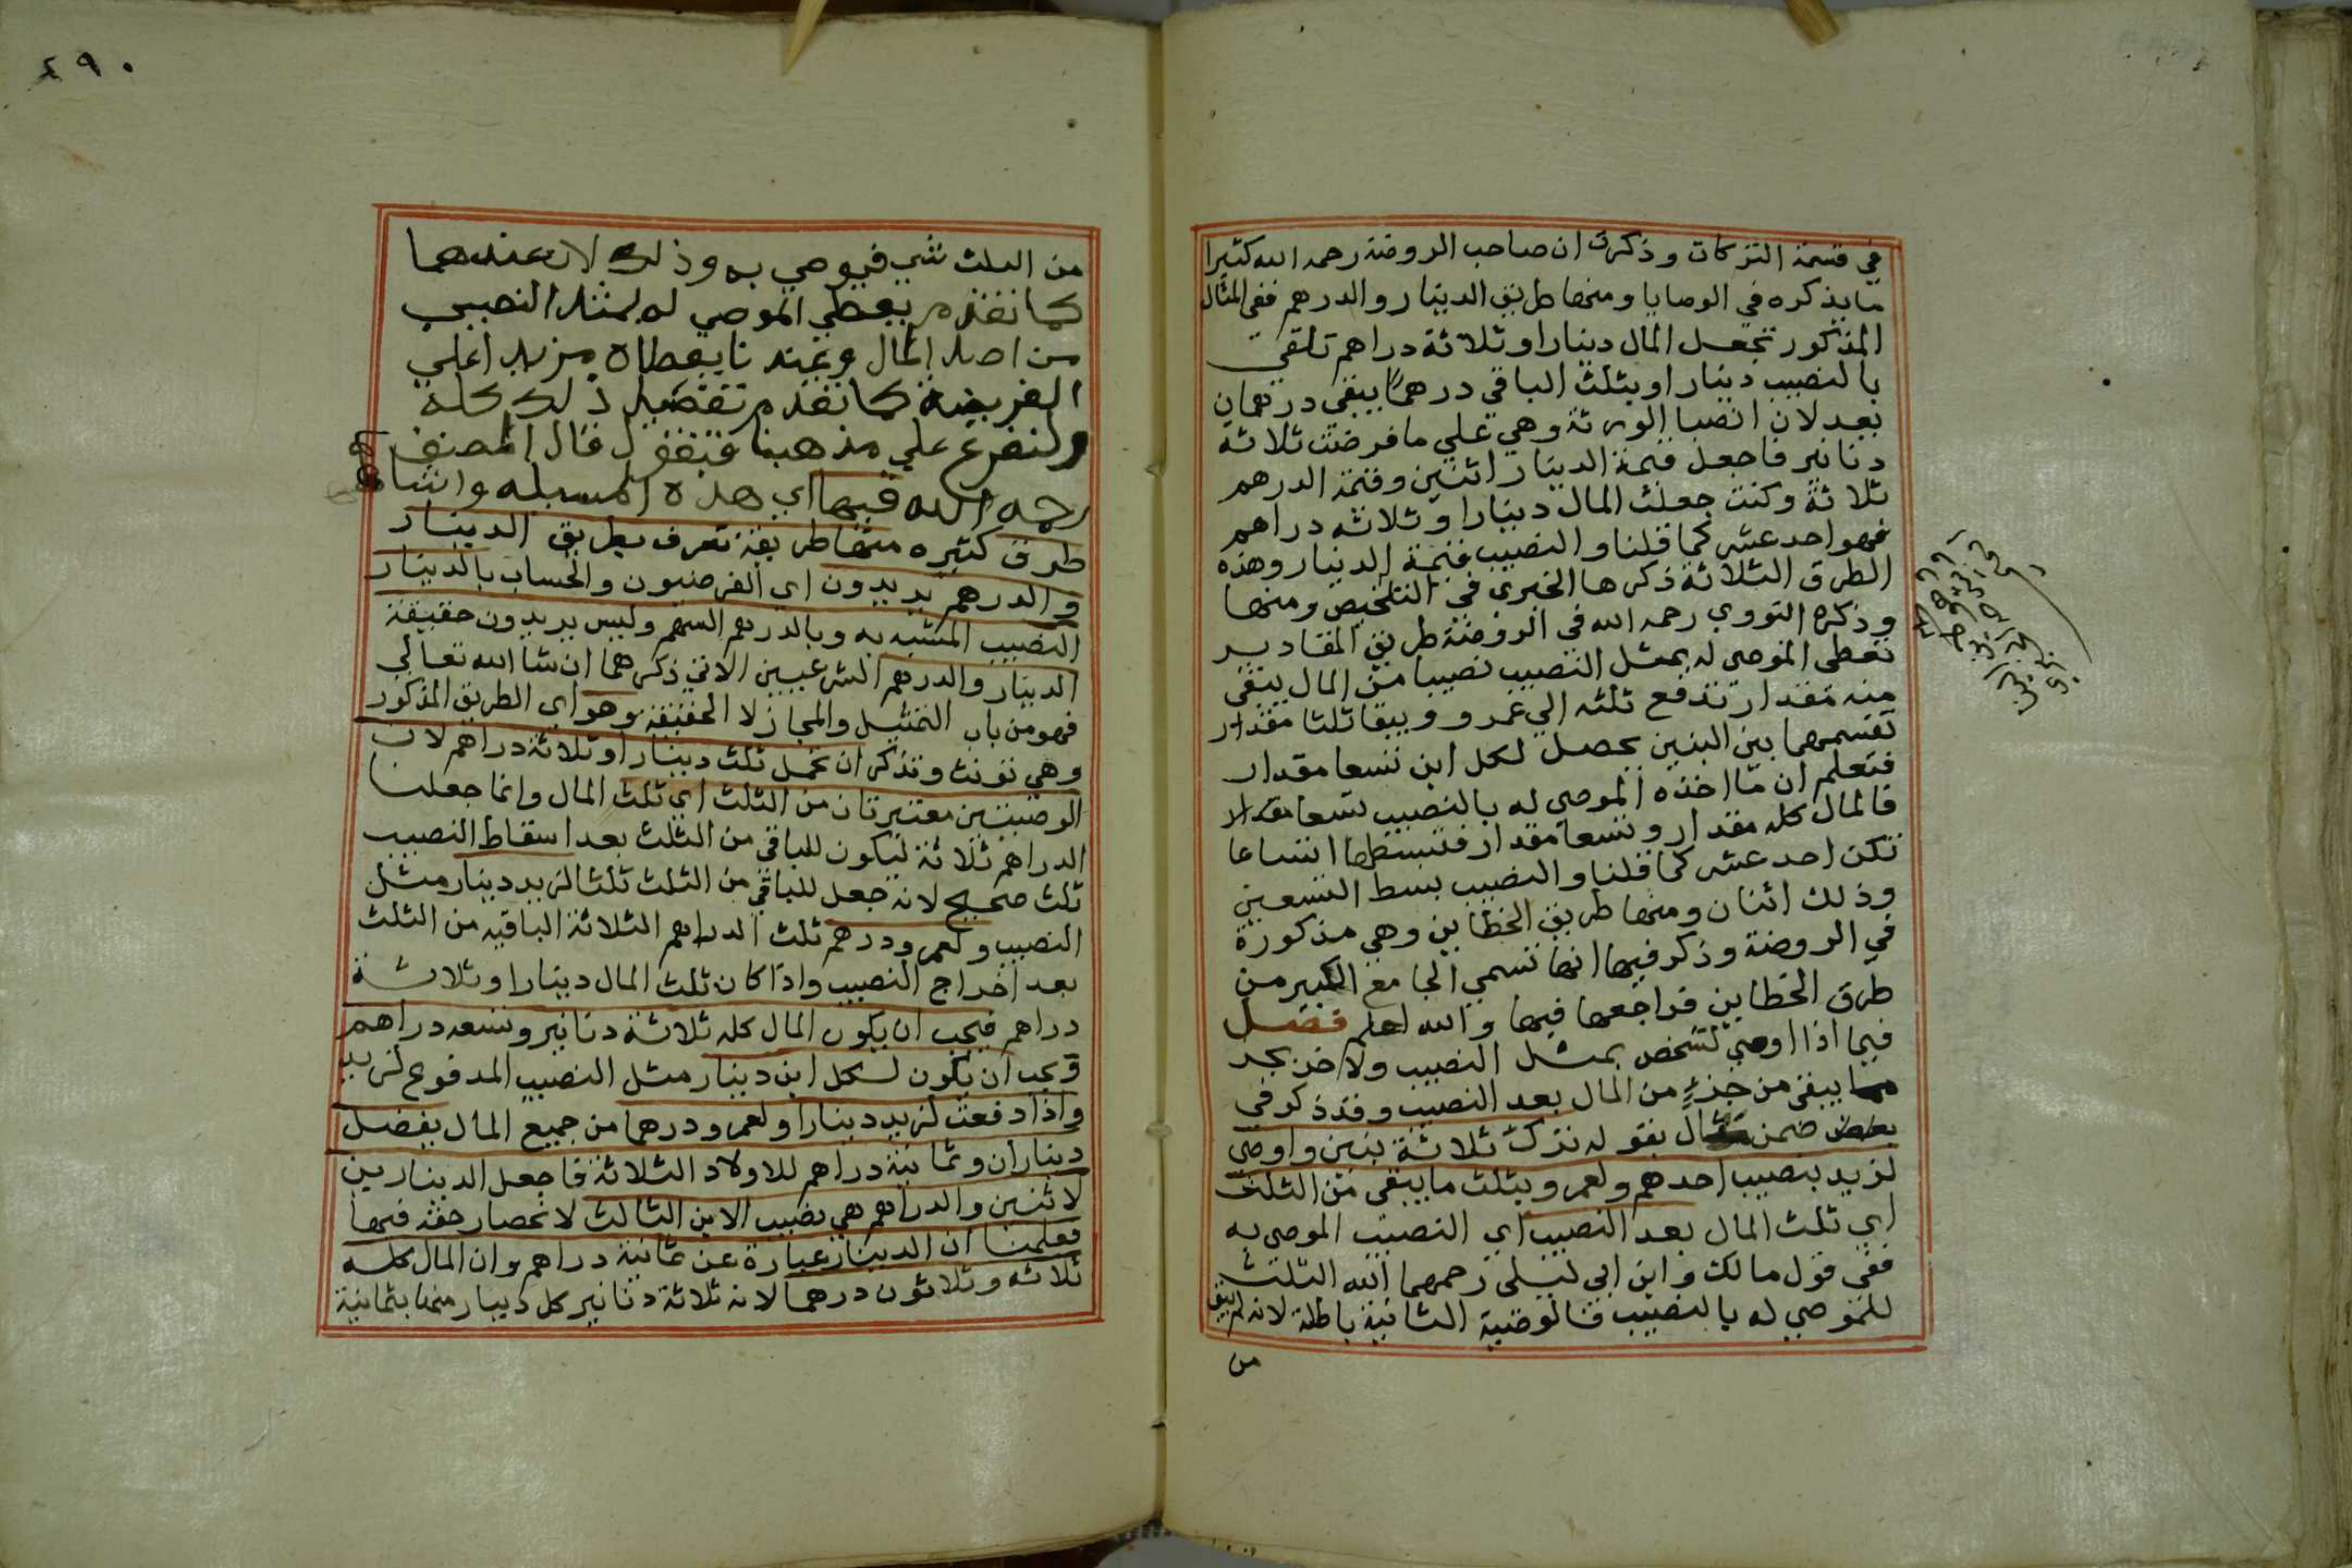 في قسمة التركات وذكرت ان صاحب الروضة رحمه الله كثيرا
ما يذكره في الوصايا ومنها طريق الدينار والدرهم ففي المثال
المذكور تجعل المال دينارا وثلاثة دراهم تلقي
بالنصيب دينارا وبثلث الباقي درهما يبقي درهمان
بعد لان انصبا الورثة وهي علي ما فرضت ثلاثة
دنانير فاجعل قيمة الدينار اثنين وقيمة الدرهم
ثلاثة وكنت جعلت المال دينارا وثلاثه دراهم
فهو احد عشر كما قلنا والنصيب قيمة الدينار وهذه
الطرق الثلاثة ذكرها الخبري في التلخيص ومنها
وذكره النووي رحمه الله في الروضة طريق المقادير
نعطي الموصي له بمثل النصيب نصيبا من المال يبقي
منه مقدار تدفع ثلثه الي عمرو ويبقا ثلثا مقدار
تقسمهما بين البنين يحصل لكل ابن تسعا مقدار
فتعلم ان ما اخذه الموصي له بالنصيب تسعا مقدار
فالمال كله مقدار وتسعا مقدار فتبسطها اتساعا
تكن احد عشر كما قلنا والنصيب بسط التسعين
وذلك اثنان ومنها طريق الخطاين وهي مذكورة
في الروضة وذكر فيها انها تسمي الجامع الكبير من
طرق الخطاين فراجعها فيها والله اعلم فصل
فيما اذا اوصي لشخص بمثل النصيب ولاخر بجز
مما يبقي من جزء من المال بعد النصيب وقد ذكر في
ضمن مثال بقوله ترك ثلاثة بنين واوصي
لزيد بنصيب احدهم ولعمرو بثلث ما يبقي من الثلث
اي ثلث المال بعد النصيب اي النصيب الموصي به
ففي قول مالك وابن ابي ليلي رحمهما الله الثلث
للموصي له بالنصيب فالوصية الثانية باطلة لانه لم يبق
من
٤٩٠
من الثلث شي فيوصي به وذلك لان عندهما
كما تقدم يعطي الموصي له بمثل النصيب
من اصل المال وعنده ما يعطاه مزيد اعلي
الفريضة كما تقدم تفصيل ذلك كله
ولنفرع علي مذهبنا فنقول قال المصنف
رحمه الله فيها اي هذه المسيله
طرق كثيره منها طريقة تعرف بطريق الدينار
والدرهم يريدون اي الفرضيون والحساب بالدينار
النصيب المشبه به وبالدرهم السهم وليس يريدون حقيقة
الدينار والدرهم الشرعيين الاتي ذكرهما ان شا الله تعالي
فهو من باب التمثيل والمجاز لا الحقيقة وهو اي الطريق المذكور
وهي تونث وتذكر ان تجعل ثلث دينارا وثلاثة دراهم لان
الوصيتين معتبرتان من الثلث اي ثلث المال وانما جعلنا
الدراهم ثلاثة ليكون للباقي من الثلث بعد اسقاط النصيب
ثلث صحيح لانه جعل للباقي من الثلث ثلثا لزيد دينار مثل
النصيب ولعمرو درهم ثلث الدراهم الثلاثة الباقيه من الثلث
بعد اخراج النصيب واذا كان ثلث المال دينارا وثلاثة
دراهم فيجب ان يكون المال كله ثلاثة دنانير وتسعه دراهم
وتجب ان يكون لكل ابن دينار مثل النصيب المدفوع لزيد
واذا دفعت لزيد دينارا ولعمرو درهما من جميع المال يفضل
ديناران وثمانية دراهم للاولاد الثلاثة فاجعل الدينارين
لاثنين والدراهم هي نصيب الابن الثالث لانحصار حقه فيها
فعلمنا ان الدينار عبارة عن ثمانية دراهم وان المال كله
ثلاثه وثلاثون درهما لانه ثلاثة دنانير كل دينار منها بثمانية